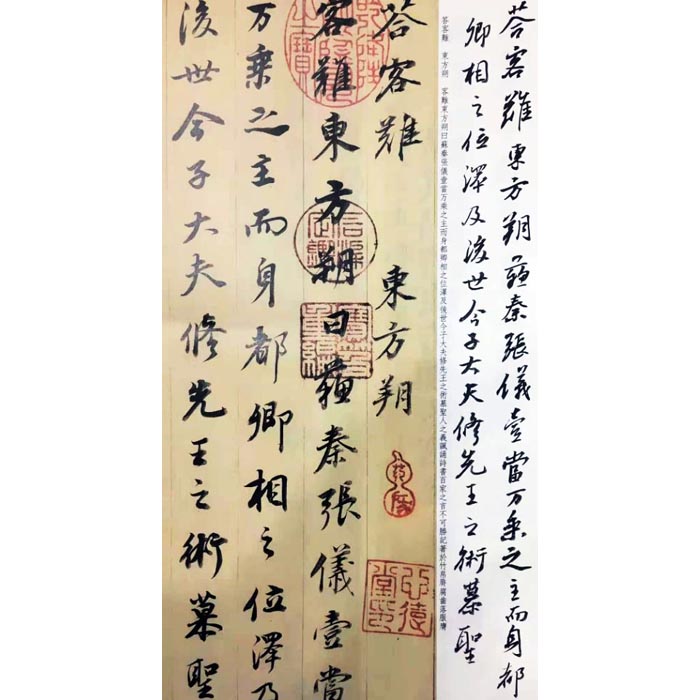 荅客難東方朔蘇秦張儀壹當万乘之主而身都
卿相之位澤及後世今子大夫修先王之術慕聖
答客難　東方朔　客難東方朔曰蘇秦張儀壹當万乘之主而身都卿相之位澤及後世今子大夫修先王之術慕聖人之義諷誦詩書百家之言不可勝記著於竹帛脣腐齒落服膺
荅客難　東方朔
客難東方朔曰蘇秦張儀壹當
万乘之主而身都卿相之位澤及
後世今子大夫修先王之術慕聖